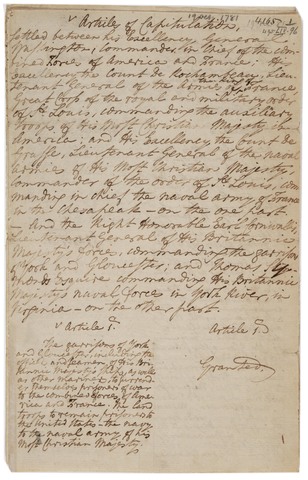 19 Octr. 1781
Articles of Capitulation,
settled between his Excellency General
Washington, Commander in Chief of the com-
bined Forces of America and France; His
Excellency the Count de Rochambeau, Lieu-
tenant General of the Armies of the King of France,
Great Cross of the royal and military order
of St. Louis, commanding the auxiliary
troops of His Most Christian Majesty in
America; and His Excellency the Count de
Grasse, Lieutenant General of the naval
armies of His Most Christian Majesty,
Commander of the order of St. Louis, com-
manding in chief the naval army of France
in the Chesapeak - on the one Part.
And the Right Honorable Earl Cornwallis,
Lieutenant General of His Britannic
Majesty's Forces, commanding the garrisons
of York and Gloucester; and Thomas Sy-
monds esquire commanding His Britannic
Majesty's naval forces in York River, in
Virginia - on the other part.
Article 1.
The garrisons of York
and Gloucester, including the
officers and seamen of His Bri-
tannic Majesty's Ships, as well
as other mariners, to surrend-
er themselves prisoners of war
to the combined forces of Ame-
rica and France. The land
troops to remain prisoners to
the United States - the navy
to the naval army of his
Most Christian Majesty.
Article 1.
Granted.